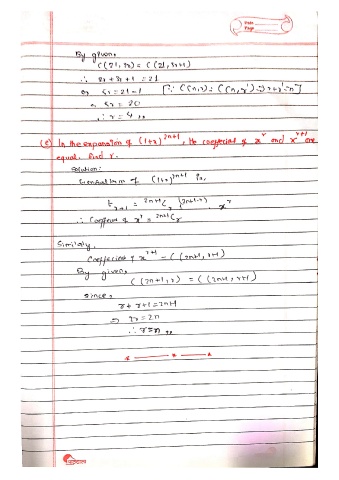 By given,
C(21, r) = C(21, r+1)
∴ r + r + 1 = 21
or 5r = 21-1 [∵ C(n,r) = C(n,r') ⇒ r+r'=n]
or 5r = 20
∴ r = 4,,
(c) In the expansion of (1+x)^2n+1, the coefficient of x^r and x^r+1 are
equal. Find r.
Solution:
General term of (1+x)^2n+1 is,
t_r+1 = ^2n+1C_r x^r
∴ Coefficient of x^r = ^2n+1C_r
Similarly,
Coefficient of x^r+1 = C(2n+1, r+1)
By given,
C(2n+1, r) = C(2n+1, r+1)
since,
r + r+1 = 2n+1
⇒ 2r = 2n
∴ r = n,,